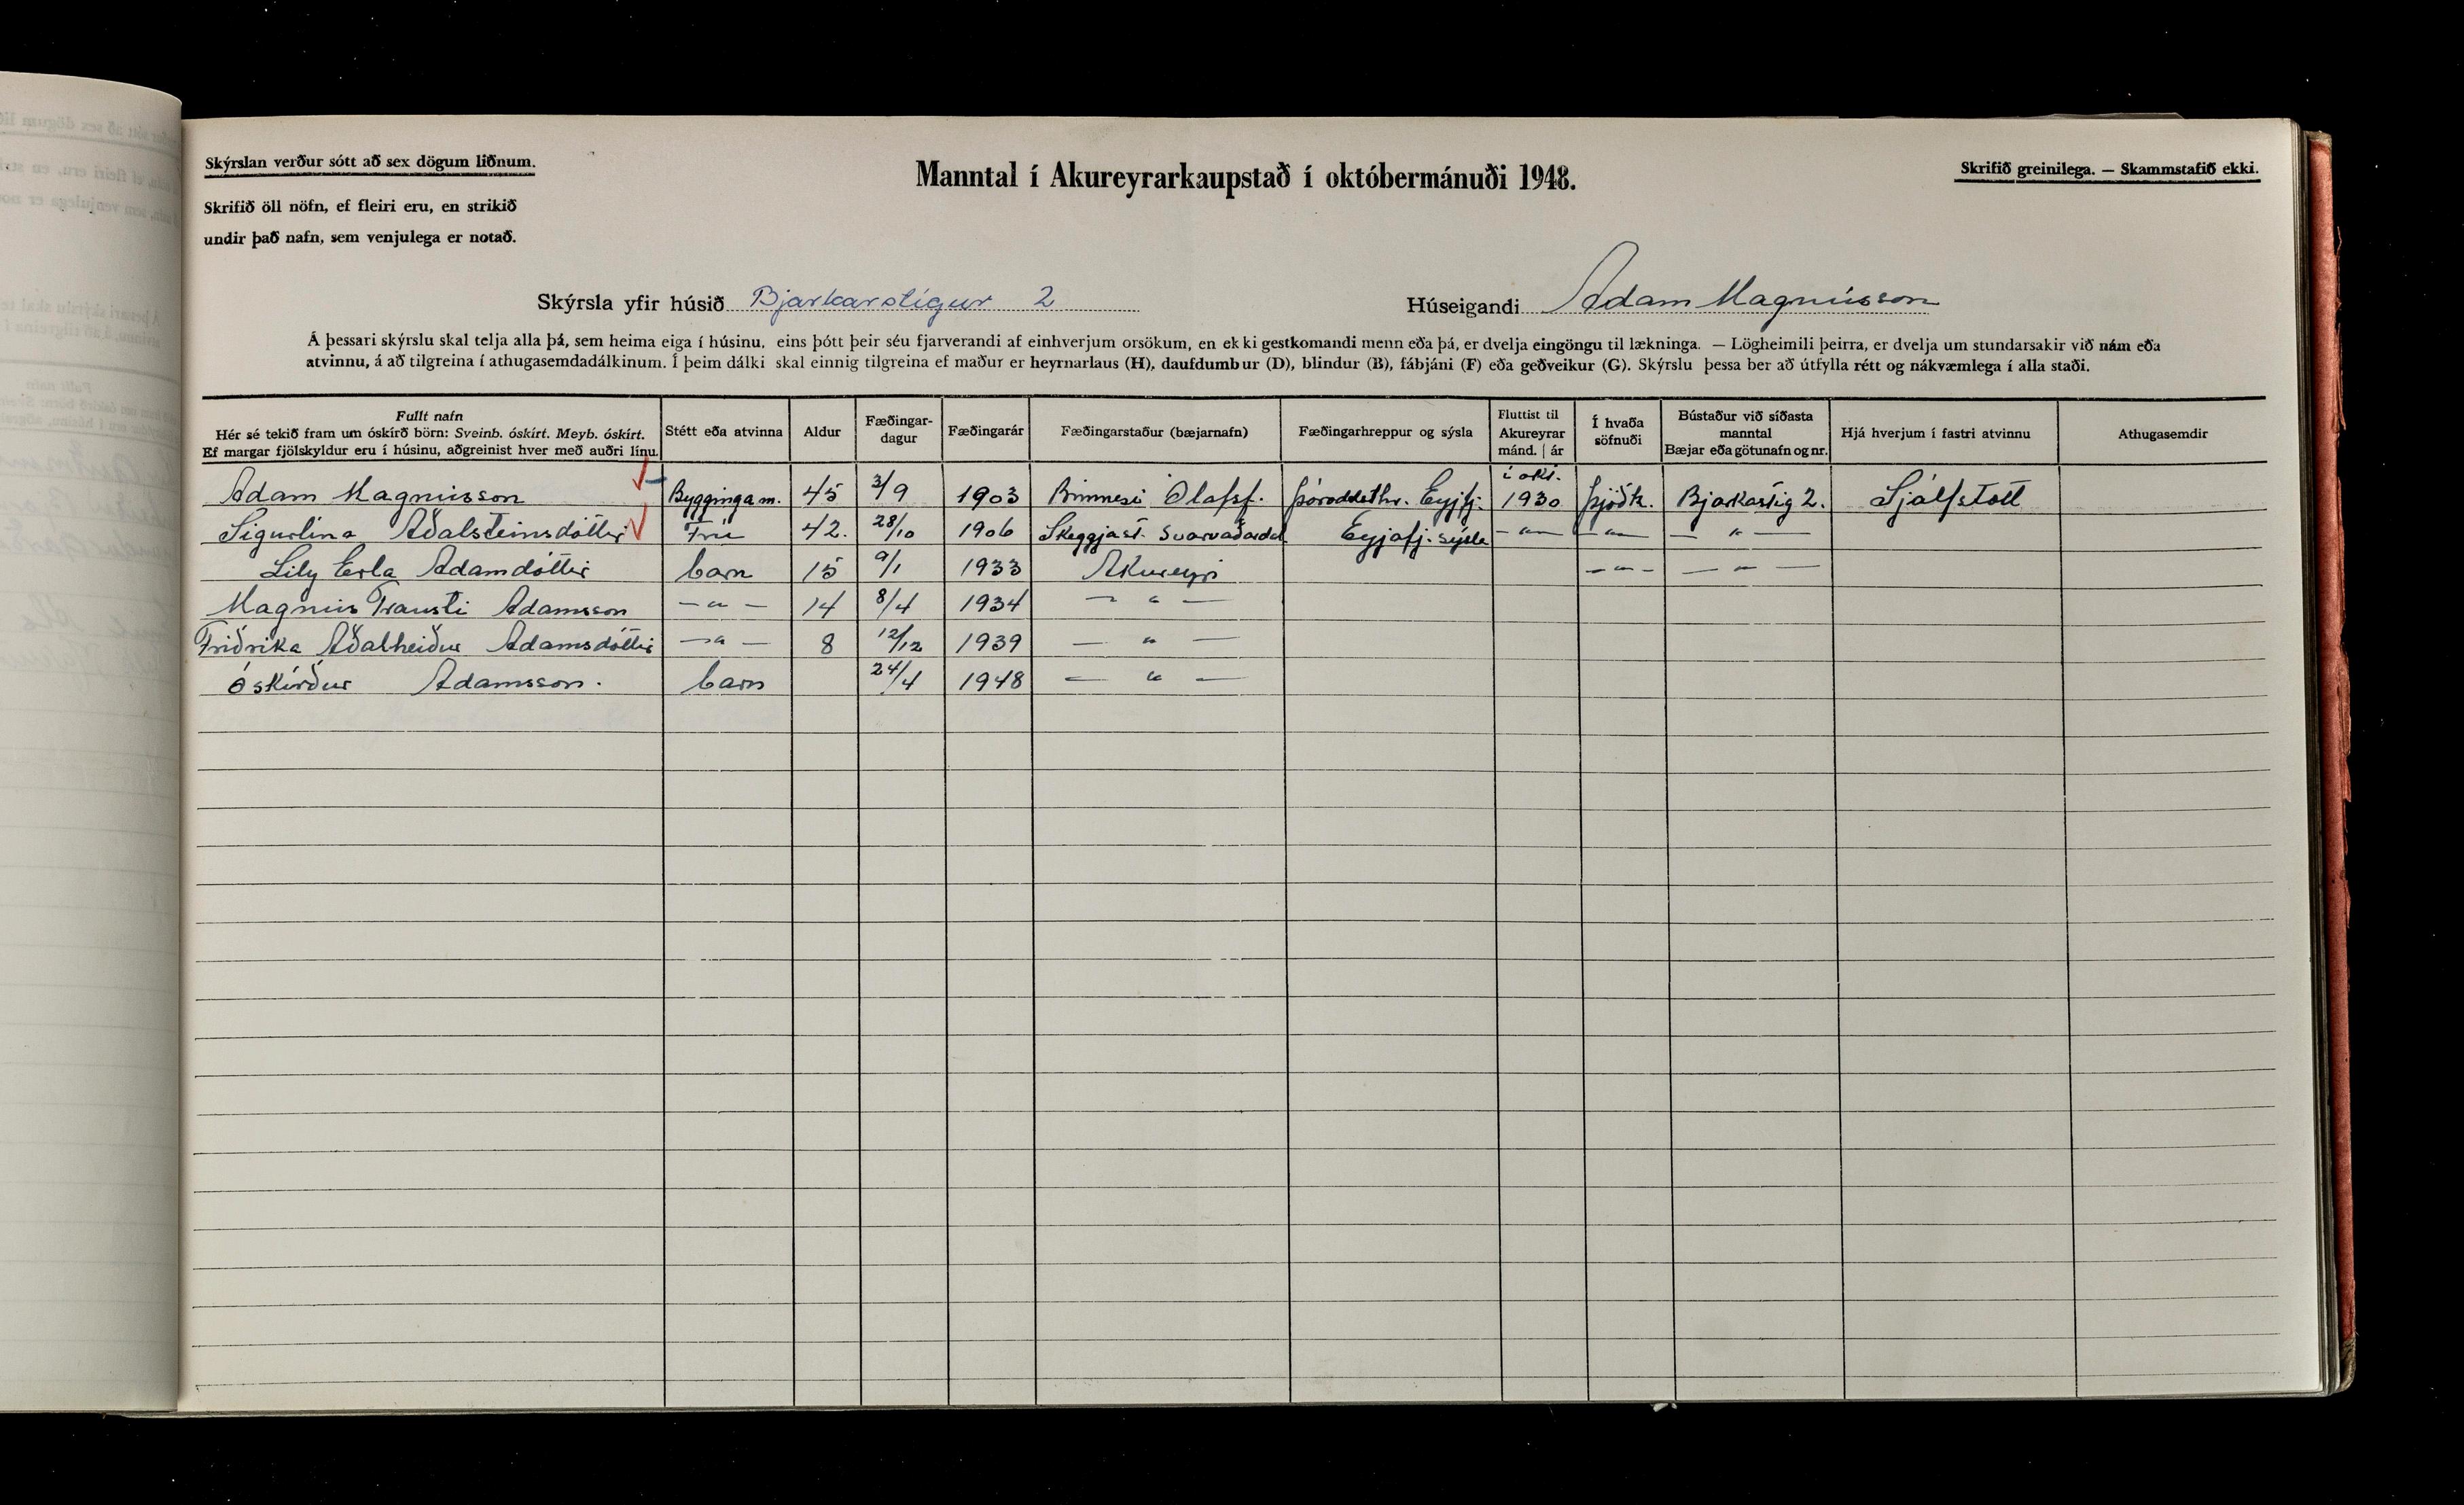 Skýrslan verður sótt að sex dögum liðnum.
Manntal í Akureyrarkaupstað í októbermánuði 1948.
Skrifið greinilega. — Skammstafið ekki.
Skrifið öll nöfn, ef fleiri eru, en strikið
undir það nafn, sem venjulega er notað.
Skýrsla yfir húsið Bjarkarstígur 2
Húseigandi Adam Magnússon
Á þessari skýrslu skal telja alla þá, sem heima eiga í húsinu, eins þótt þeir séu fjarverandi af einhverjum orsökum, en ekki gestkomandi menn eða þá, er dvelja eingöngu til lækninga. — Lögheimili þeirra, er dvelja um stundarsakir við nám eða
atvinnu, á að tilgreina í athugasemdadálkinum. Í þeim dálki skal einnig tilgreina ef maður er heyrnarlaus (H), daufdumbur (D), blindur (B), fábjáni (F) eða geðveikur (G). Skýrslu þessa ber að útfylla rétt og nákvæmlega í alla staði.
Fullt nafn
Hér sé tekið fram um óskírð börn: Sveinb. óskírt. Meyb. óskírt.
Ef margar fjölskyldur eru í húsinu, aðgreinist hver með auðri línu.
Stétt eða atvinna
Aldur
Fæðingar-
dagur
Fæðingarár
Fæðingarstaður (bæjarnafn)
Fæðingarhreppur og sýsla
Fluttist til
Akureyrar
mánd. | ár
Í hvaða
söfnuði
Bústaður við síðasta
manntal
Bæjar eða götunafn og nr.
Hjá hverjum í fastri atvinnu
Athugasemdir
Adam Magnússon Byggingam. 45 3/9 1903 Brimnesi Ólafsf. Þóroddsthr. Eyjfj. í okt. 1930 Þjóðk. Bjarkastíg 2. Sjálfstætt
Sigurlína Aðalsteinsdóttir Frú 42. 28/10 1906 Skeggjast. Svarvaðardal Eyjafj. sýsla — " — — " — — " —
Lily Erla Adamdóttir barn 15 9/1 1933 Akureyri — " — — " —
Magnús Trausti Adamsson — " — 14 8/4 1934 — " —
Friðrika Aðalheiður Adamsdóttir — " — 8 12/12 1939 — " —
óskírður Adamsson. barn 24/4 1948 — " —